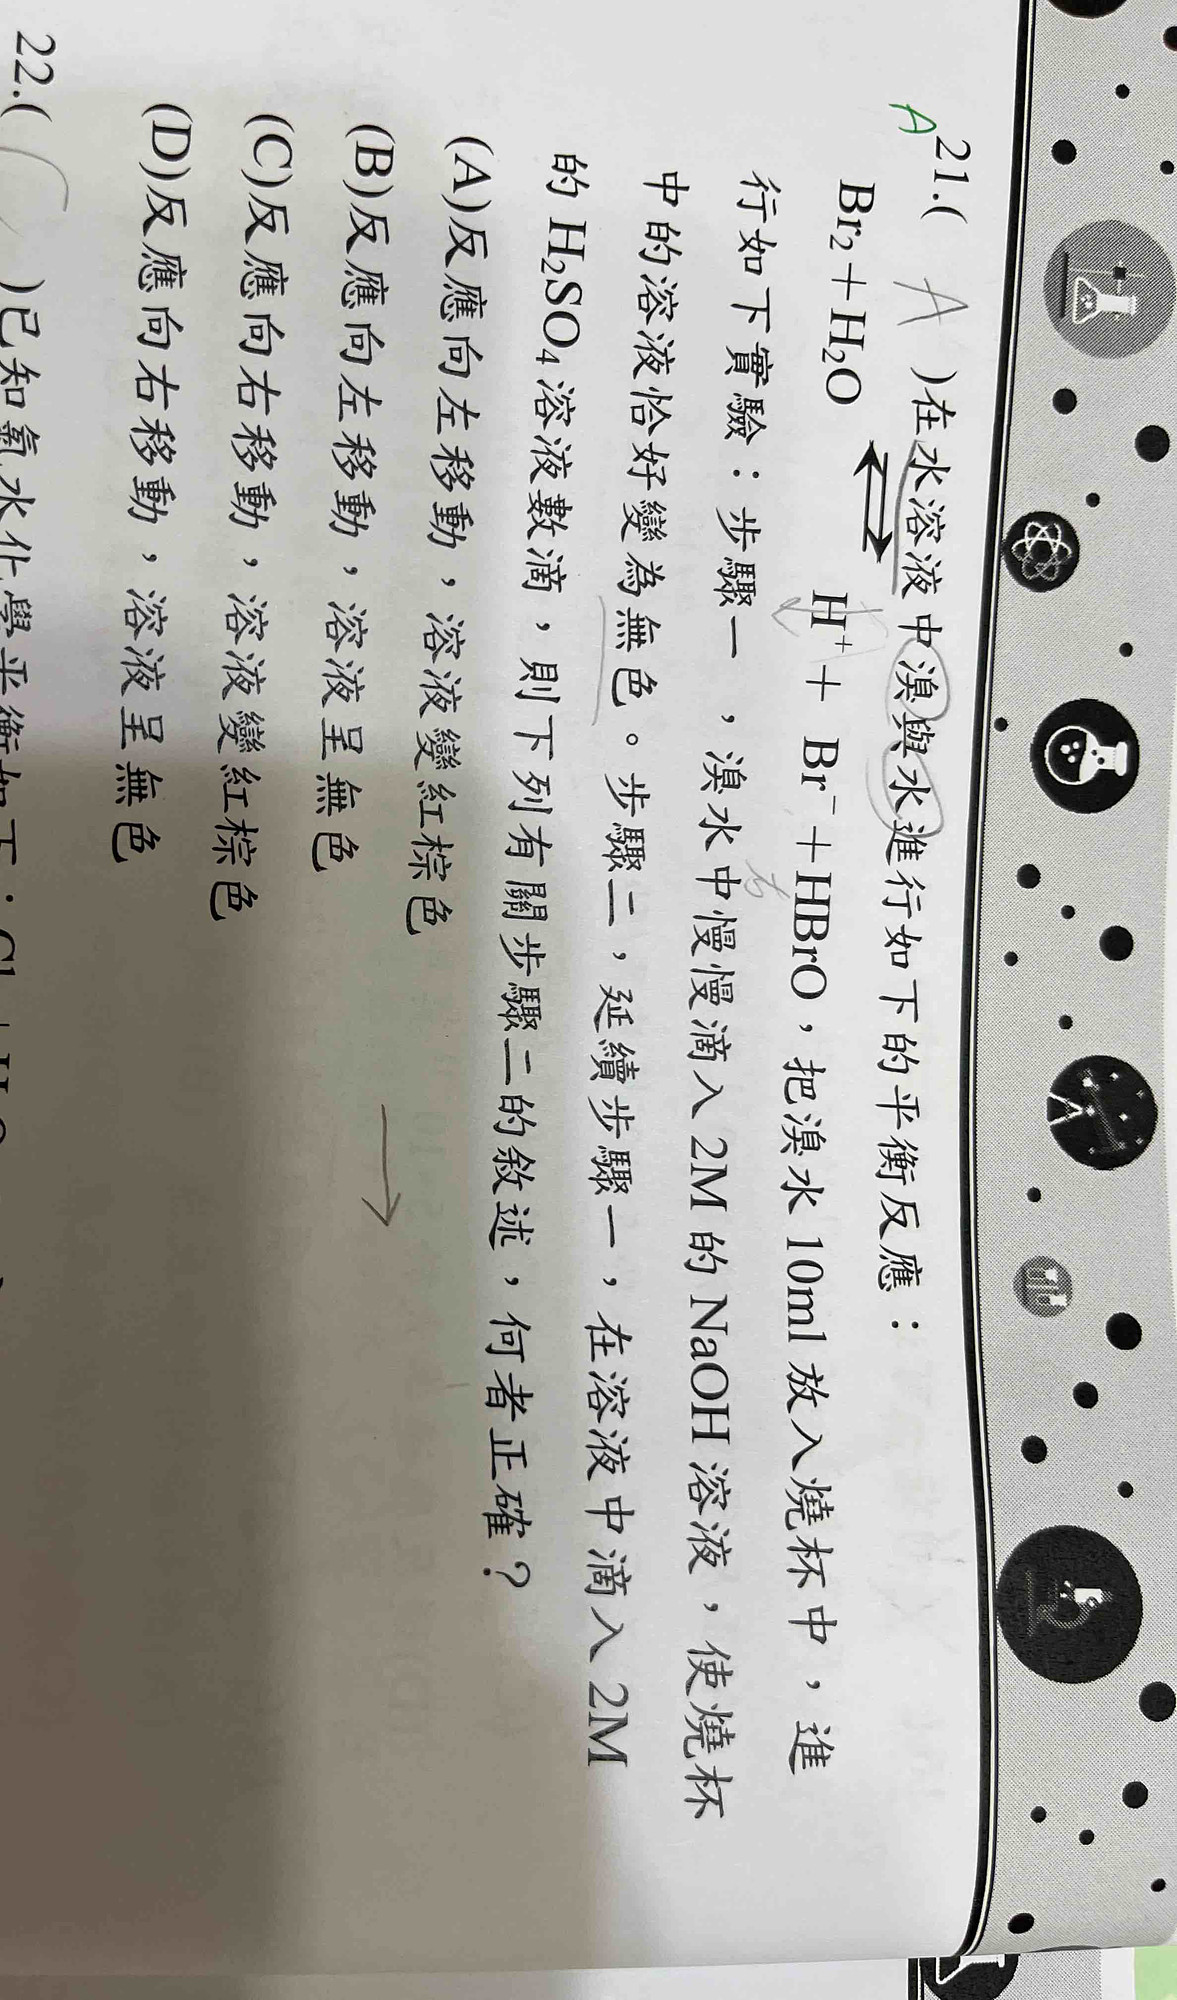 A
21.( A )在水溶液中溴與水進行如下的平衡反應：
Br₂＋H₂O ⇌ H⁺＋ Br⁻＋HBrO，把溴水 10ml 放入燒杯中，進
行如下實驗：步驟一，溴水中慢慢滴入 2M 的 NaOH 溶液，使燒杯
中的溶液恰好變為無色。步驟二，延續步驟一，在溶液中滴入 2M
的 H₂SO₄ 溶液數滴，則下列有關步驟二的敘述，何者正確？
(A)反應向左移動，溶液變紅棕色
(B)反應向左移動，溶液呈無色
(C)反應向右移動，溶液變紅棕色
(D)反應向右移動，溶液呈無色
22.( C )已知氯水化學平衡如下：